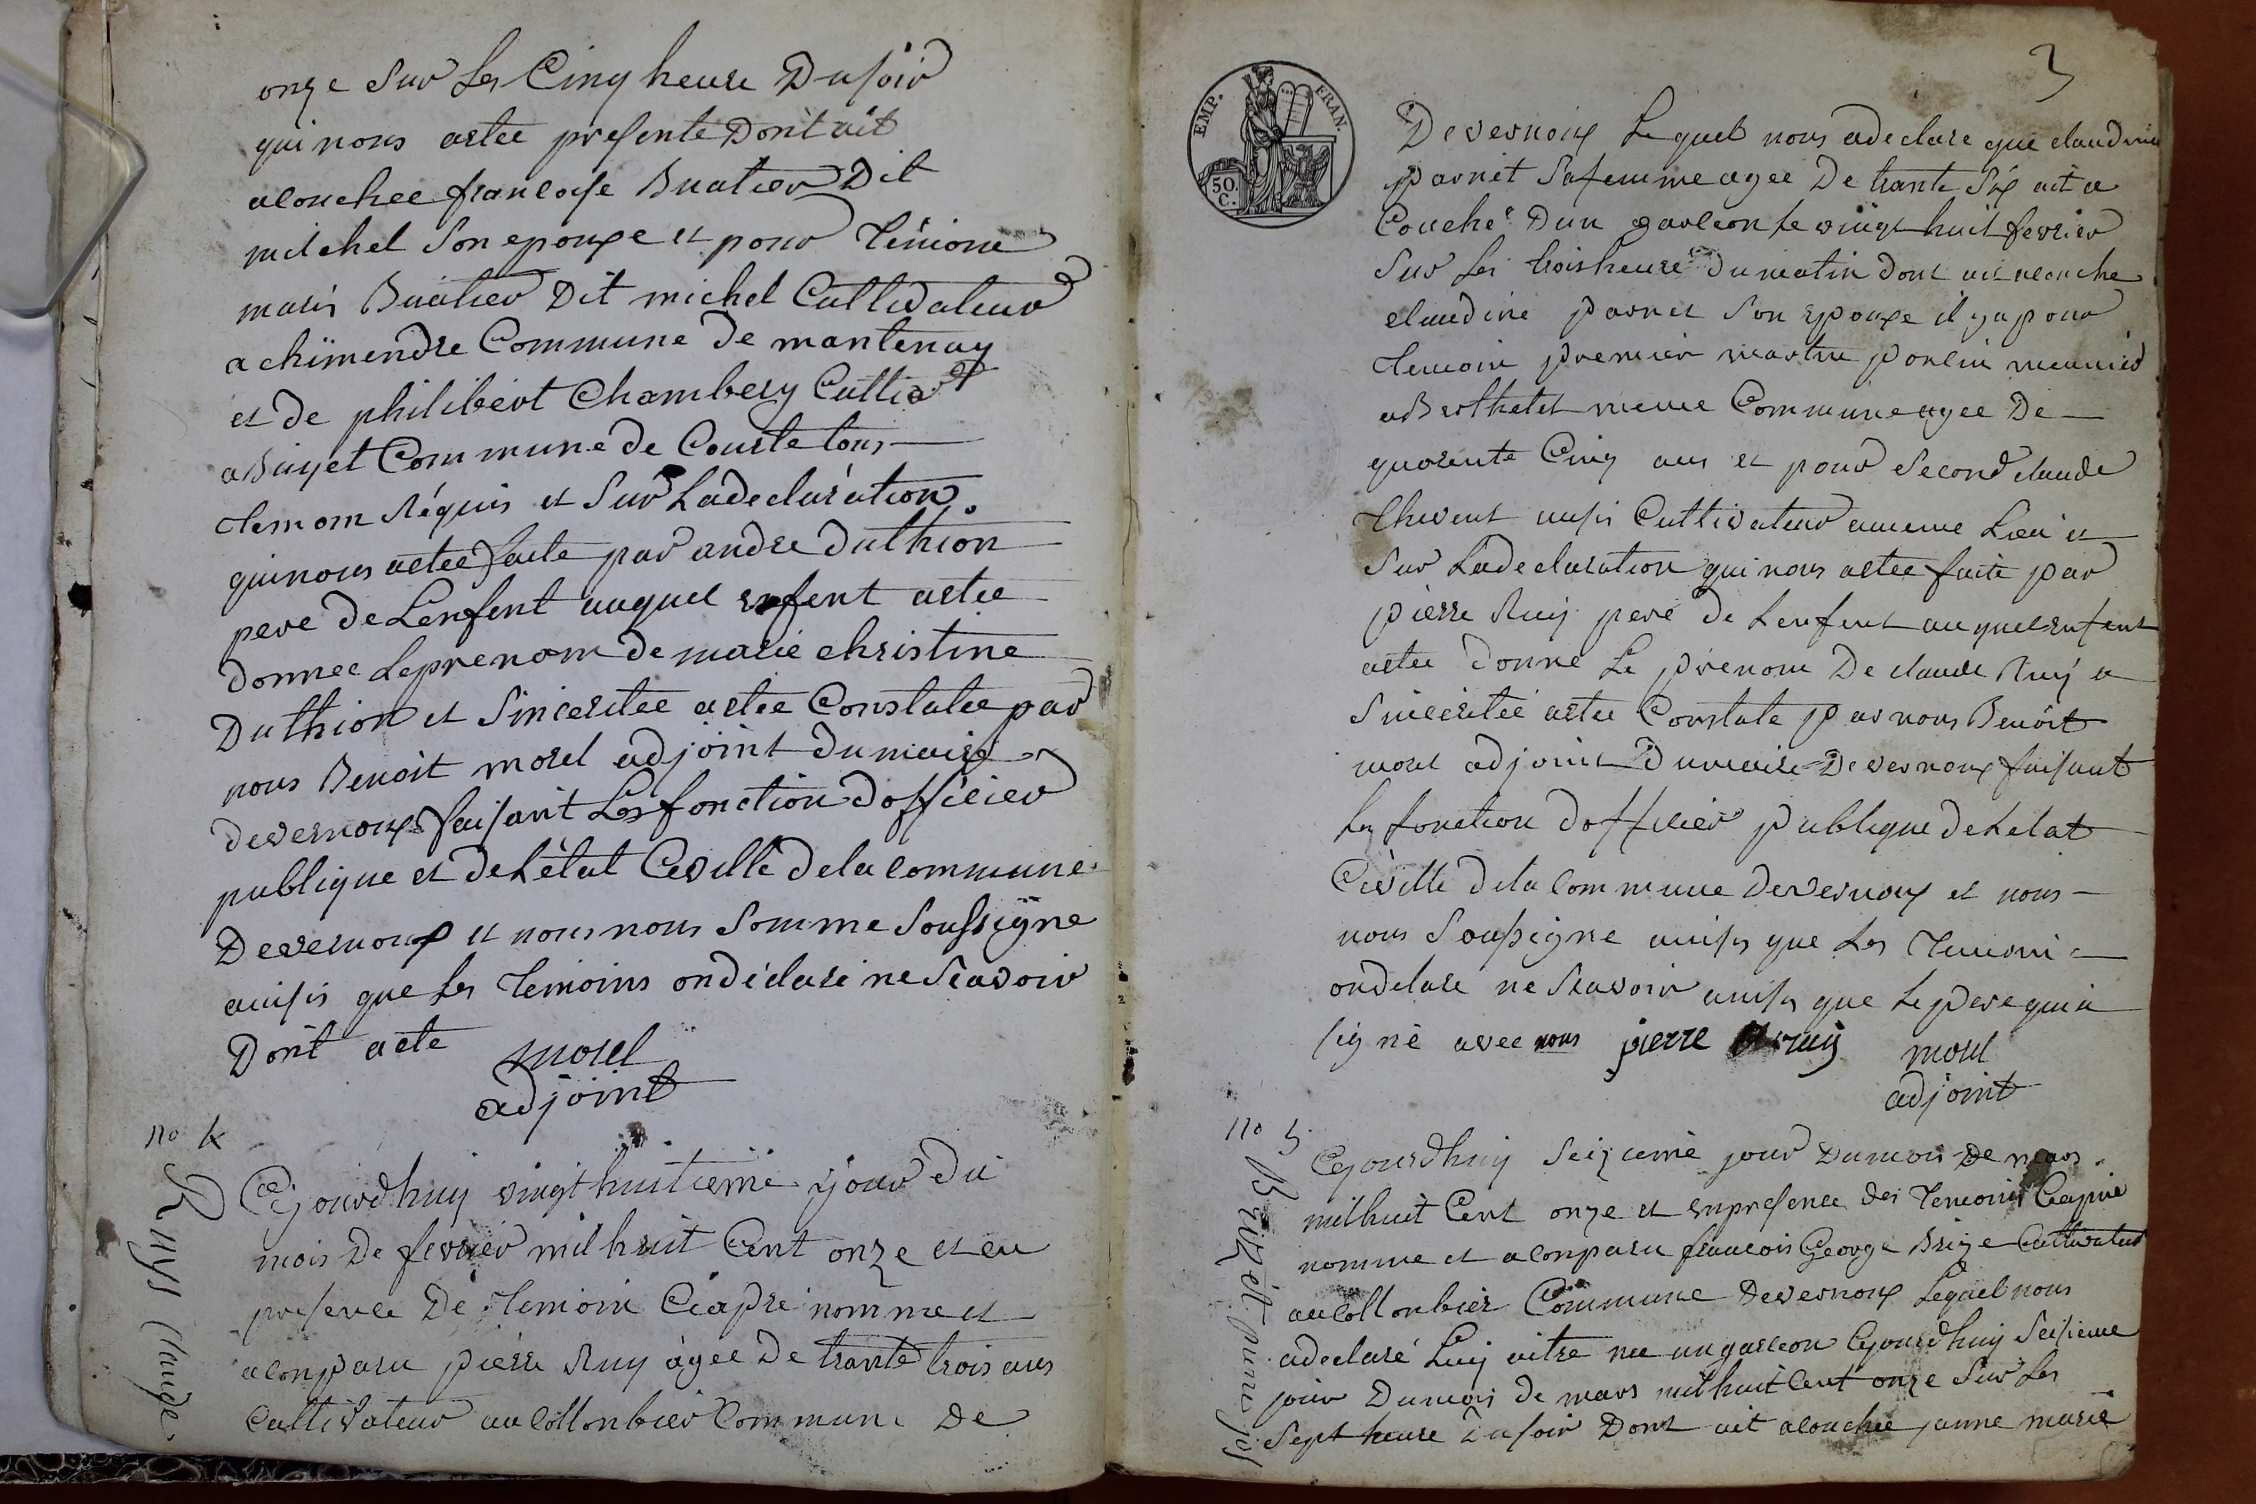 onze Sur Les Cinq heure Du soir
qui nous aetee presente Dont ait
acouchee francoise Buatier Dit
mitchel Son epouxe et pour Temoine
maris Buatier Dit michel Cultivateur
a chimendre Commune De mantenay
et de philibert Chambery Cultivr
a Buyet Commune de Courtetous
Temoin Réquis et Sur La declaration
qui nous aetee faite par andre Duthion
pere De Lenfent auquel enfent aetee
Donnee Le prenom De marie christine
Duthion et Sinceritee aetee Constatee par
nous Benoit morel adjoint Du maire
devernoux faisant Les fonction Dofficier
publique et de Létat Ceville de la Commune
Devernoux et nous nous Somme Soussigne
ainsis que Les Temoins on déclaré ne Scavoir
Dont acte morel
adjoint
no 4
Ruys Claude
Cejourdhuy vingt huitieme jour Du
mois De fevrier mil huit Cent onze et en
presence De Temoin Ciapre nomme et
a Conparu pierre Ruy agee De trante trois ans
Cultivateur au Collonbier Commune De
3
EMP. FRAN.
50. C.
Devernoux Le quel nous a declare que claudine
parnet Sa femme agee De trante Six ait a
Couche Dun garcon Le vingt huit fevrier
Sur Les trois heure Du matin Dont ait acouche
claudine parnet Son epouxe il y a pour
Temoin premier martin poncin meunier
a Berthelet meme Commune agee De
quarente Cinq ans et pour Second claude
Thevent ausis Cultivateur au meme Lieu et
Sur La declaration qui nous aetee faite par
pierre Ruy pere De Lenfent au quel enfent
aetee Donne Le prenom De claude Ruy et
Sinceritée aetee Constate par nous Benoit
morel adjoint Du maire Devernoux faisant
Les fonction Dofficier publique de Letat
Ceville de la Commune Devernoux et nous
nous Soussigne ainsis que Les Temoin
on delare ne Scavoir ainsis que Le pere qui a
signé avec nous pierre ruy morel
adjoint
no 5
Brizet
Cejourdhuy Seizieme jour Du mois De mars
mil huit Cent onze et en presence des Temoins Ciapre
nomme et a Conparu francois George Brize Cultivateur
au Collonbier Commune Devernoux Lequel nous
a declaré Luy aitre nee un garcon Cejourdhuy Seisieme
jour Du mois de mars mil huit Cent onze Sur Les
Sept heure Du soir Dont ait acouchee janne marie